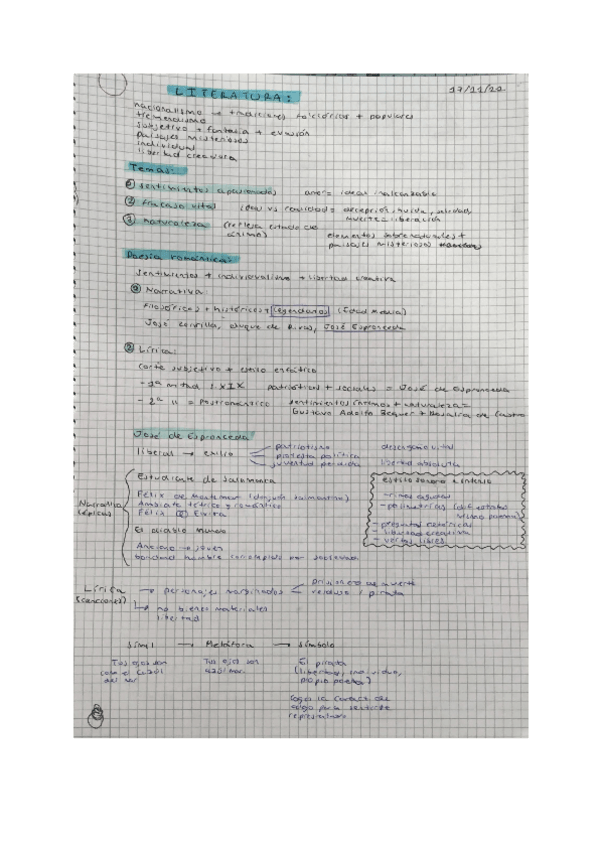 LITERATURA:
17/11/22
nacionalismo → tradiciones folclóricas + populares
tremendismo
subjetivo + fantasía + evasión
paisajes misteriosos
individual
libertad creadora
Temas:
① sentimientos apasionados amor = ideal inalcanzable
② Fracaso vital ideal vs realidad = decepción, huida, soledad
muerte = liberación
③ naturaleza (refleja estado de ánimo) elementos sobrenaturales +
paisajes misteriosos
Poesía romántica:
sentimientos + individualismo + libertad creativa
① Narrativa:
Filosóficos + históricos + legendarios (Edad media)
José Zorrilla, Duque de Rivas, José Espronceda
② Lírica:
corte subjetivo + estilo enfático
- 1ª mitad S. XIX patrióticos + sociales = José de Espronceda
- 2ª " = Postromántico sentimientos íntimos + naturaleza =
Gustavo Adolfo Bequer + Rosalía de Castro
José de Espronceda
liberal → exilio
patriotismo
protesta política
juventud perdida
desengaño vital
libertad absoluta
Narrativa
(épicas)
Estudiante de Salamanca
Félix de Montemar (donjuán salmantino)
Ambiente tétrico y romántico
Félix Elvira
El diablo mundo
Anciano → joven
bondad hombre corrompido por sociedad
estilo sonoro e intenso
- rimas agudas
- polimetrías (dif estrofas
mismo poema)
- preguntas retóricas
- libertad creativa
- versos libres
Lírica
(canciones)
→ personajes marginados
prisionero de muerte
verdugo / pirata
↳ no bienes materiales
libertad
Símil → Metáfora → símbolo
Tus ojos son
como el azul
del mar
Tus ojos son
azul mar.
El pirata
(libertad, individuo,
propio poeta)
cojo la caract. de
algo para sentirte
representado